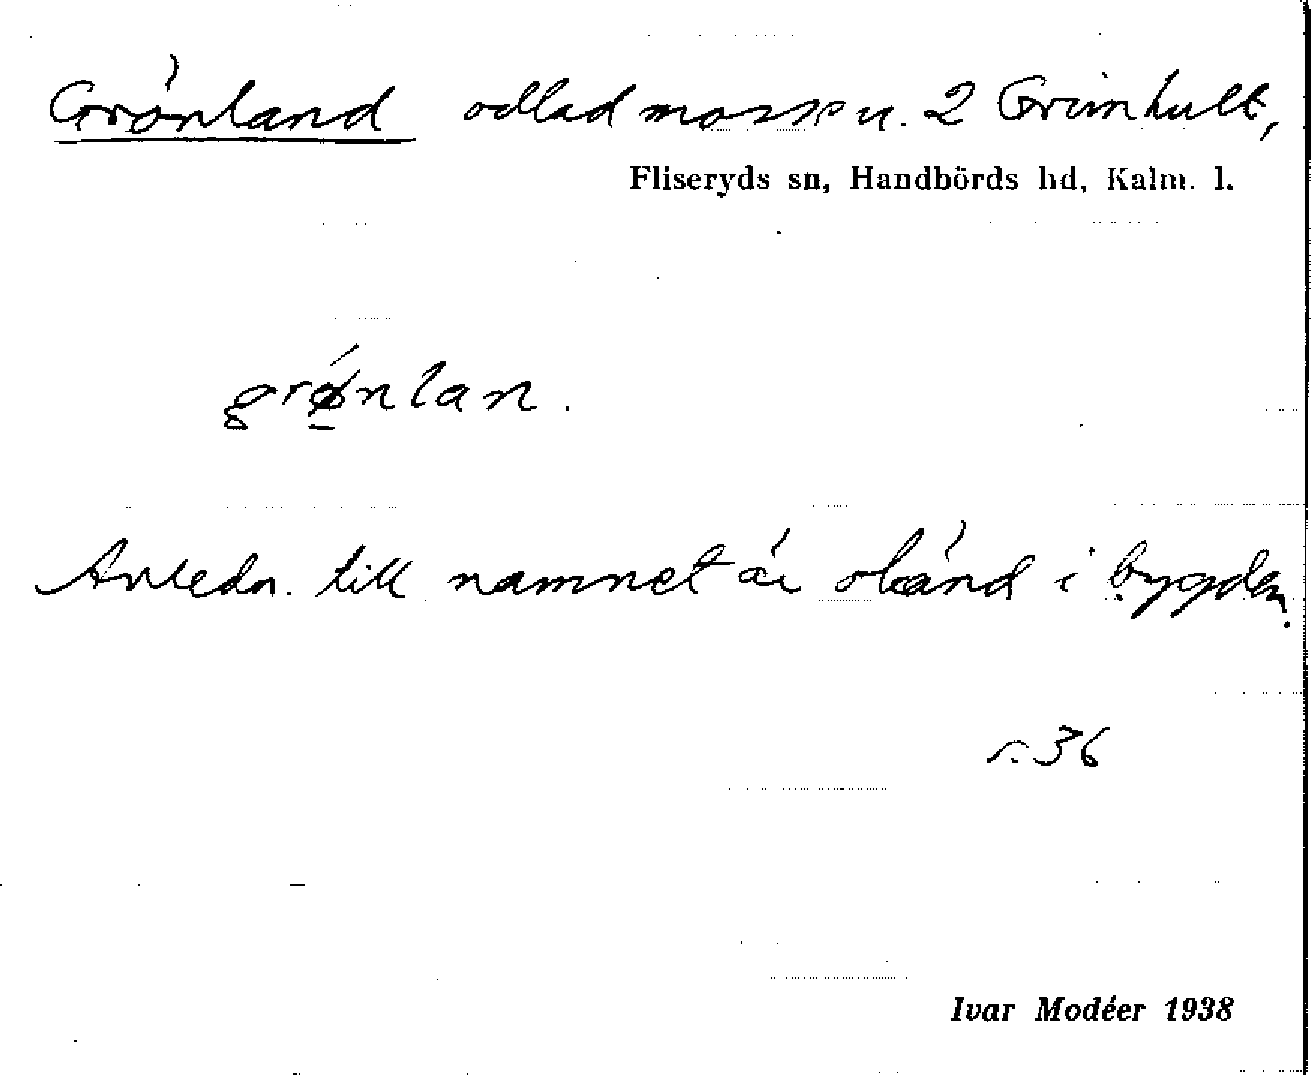 Grönland odlad mosse u. 2 Grimhult,
Fliseryds sn, Handbörds hd, Kalm. l.
grǿ̱nlan.
Anledn. till namnet är okänd i bygden.
s. 36
Ivar Modéer 1938